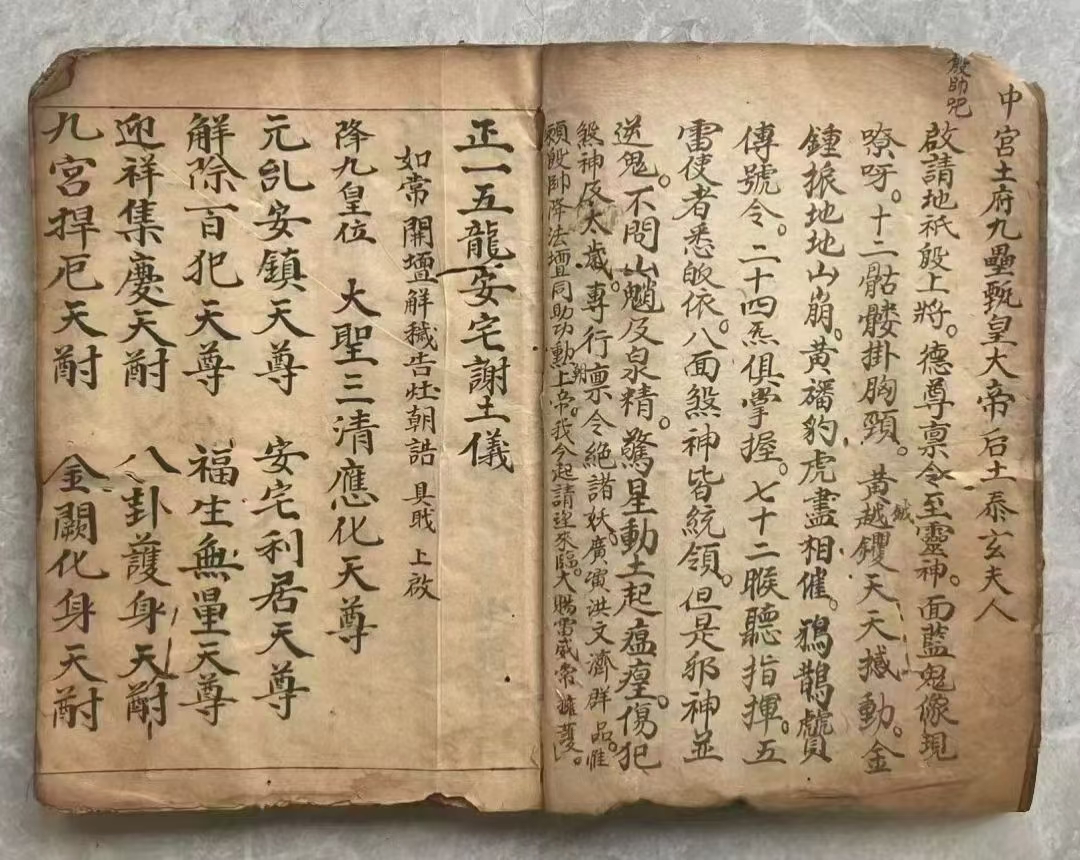 中宮土府九壘甄皇大帝后土泰玄夫人
殷帥咒
啟請地祇殷上將。德尊稟令至靈神。面藍鬼像現
嘹呀。十二骷髏掛胸頸。黃越鑼天天撼動。金
鉞
鍾振地地山崩。黃旛豹虎盡相催。鴉鵲
傳號令。二十四炁俱掌握。七十二睺聽指揮。五
雷使者悉皈依。八面煞神皆統領。但是邪神並
逆鬼。不問山魈及泉精。驚星動土起瘟瘽。傷犯
煞神及太歲。專行稟令絕諸妖。廣演洪文濟群品。惟
願殷帥降法壇。同助功勳上帝。我今起請望來臨。大賜雷威常擁護。
朝
正一五龍安宅謝土儀
如常開壇解穢告灶朝誥 具戝 上啟
降九皇位 大聖三清應化天尊
元乩安鎮天尊 安宅利居天尊
解除百犯天尊 福生無量天尊
迎祥集慶天尌 八卦護身天尌
九宮捍厄天尌 金闕化身天尌